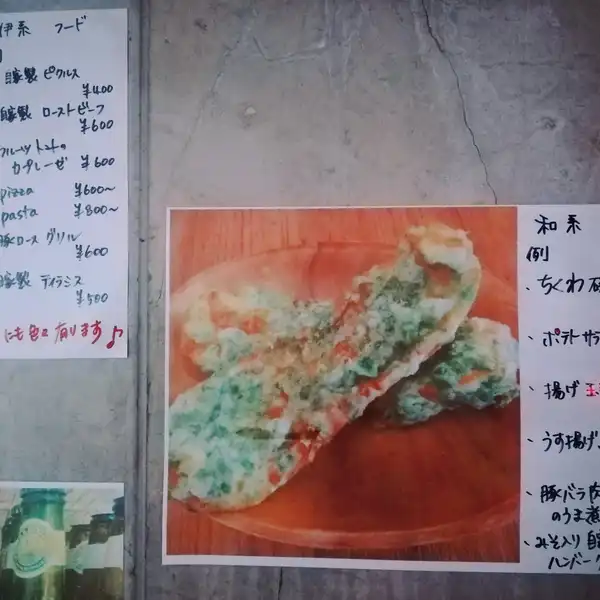 伊系 フード
自家製 ピクルス
¥400
自家製 ローストビーフ
¥600
フルーツトマトの
カプレーゼ ¥600
pizza ¥600～
pasta ¥800～
豚ロース グリル
¥600
自家製 ティラミス
¥500
にも色々有ります♪
和系
例
・ちくわ
・ポテトサラ
・揚げ
・うす揚げ
・豚バラ肉
のうま煮
・みそ入り 自
ハンバーグ